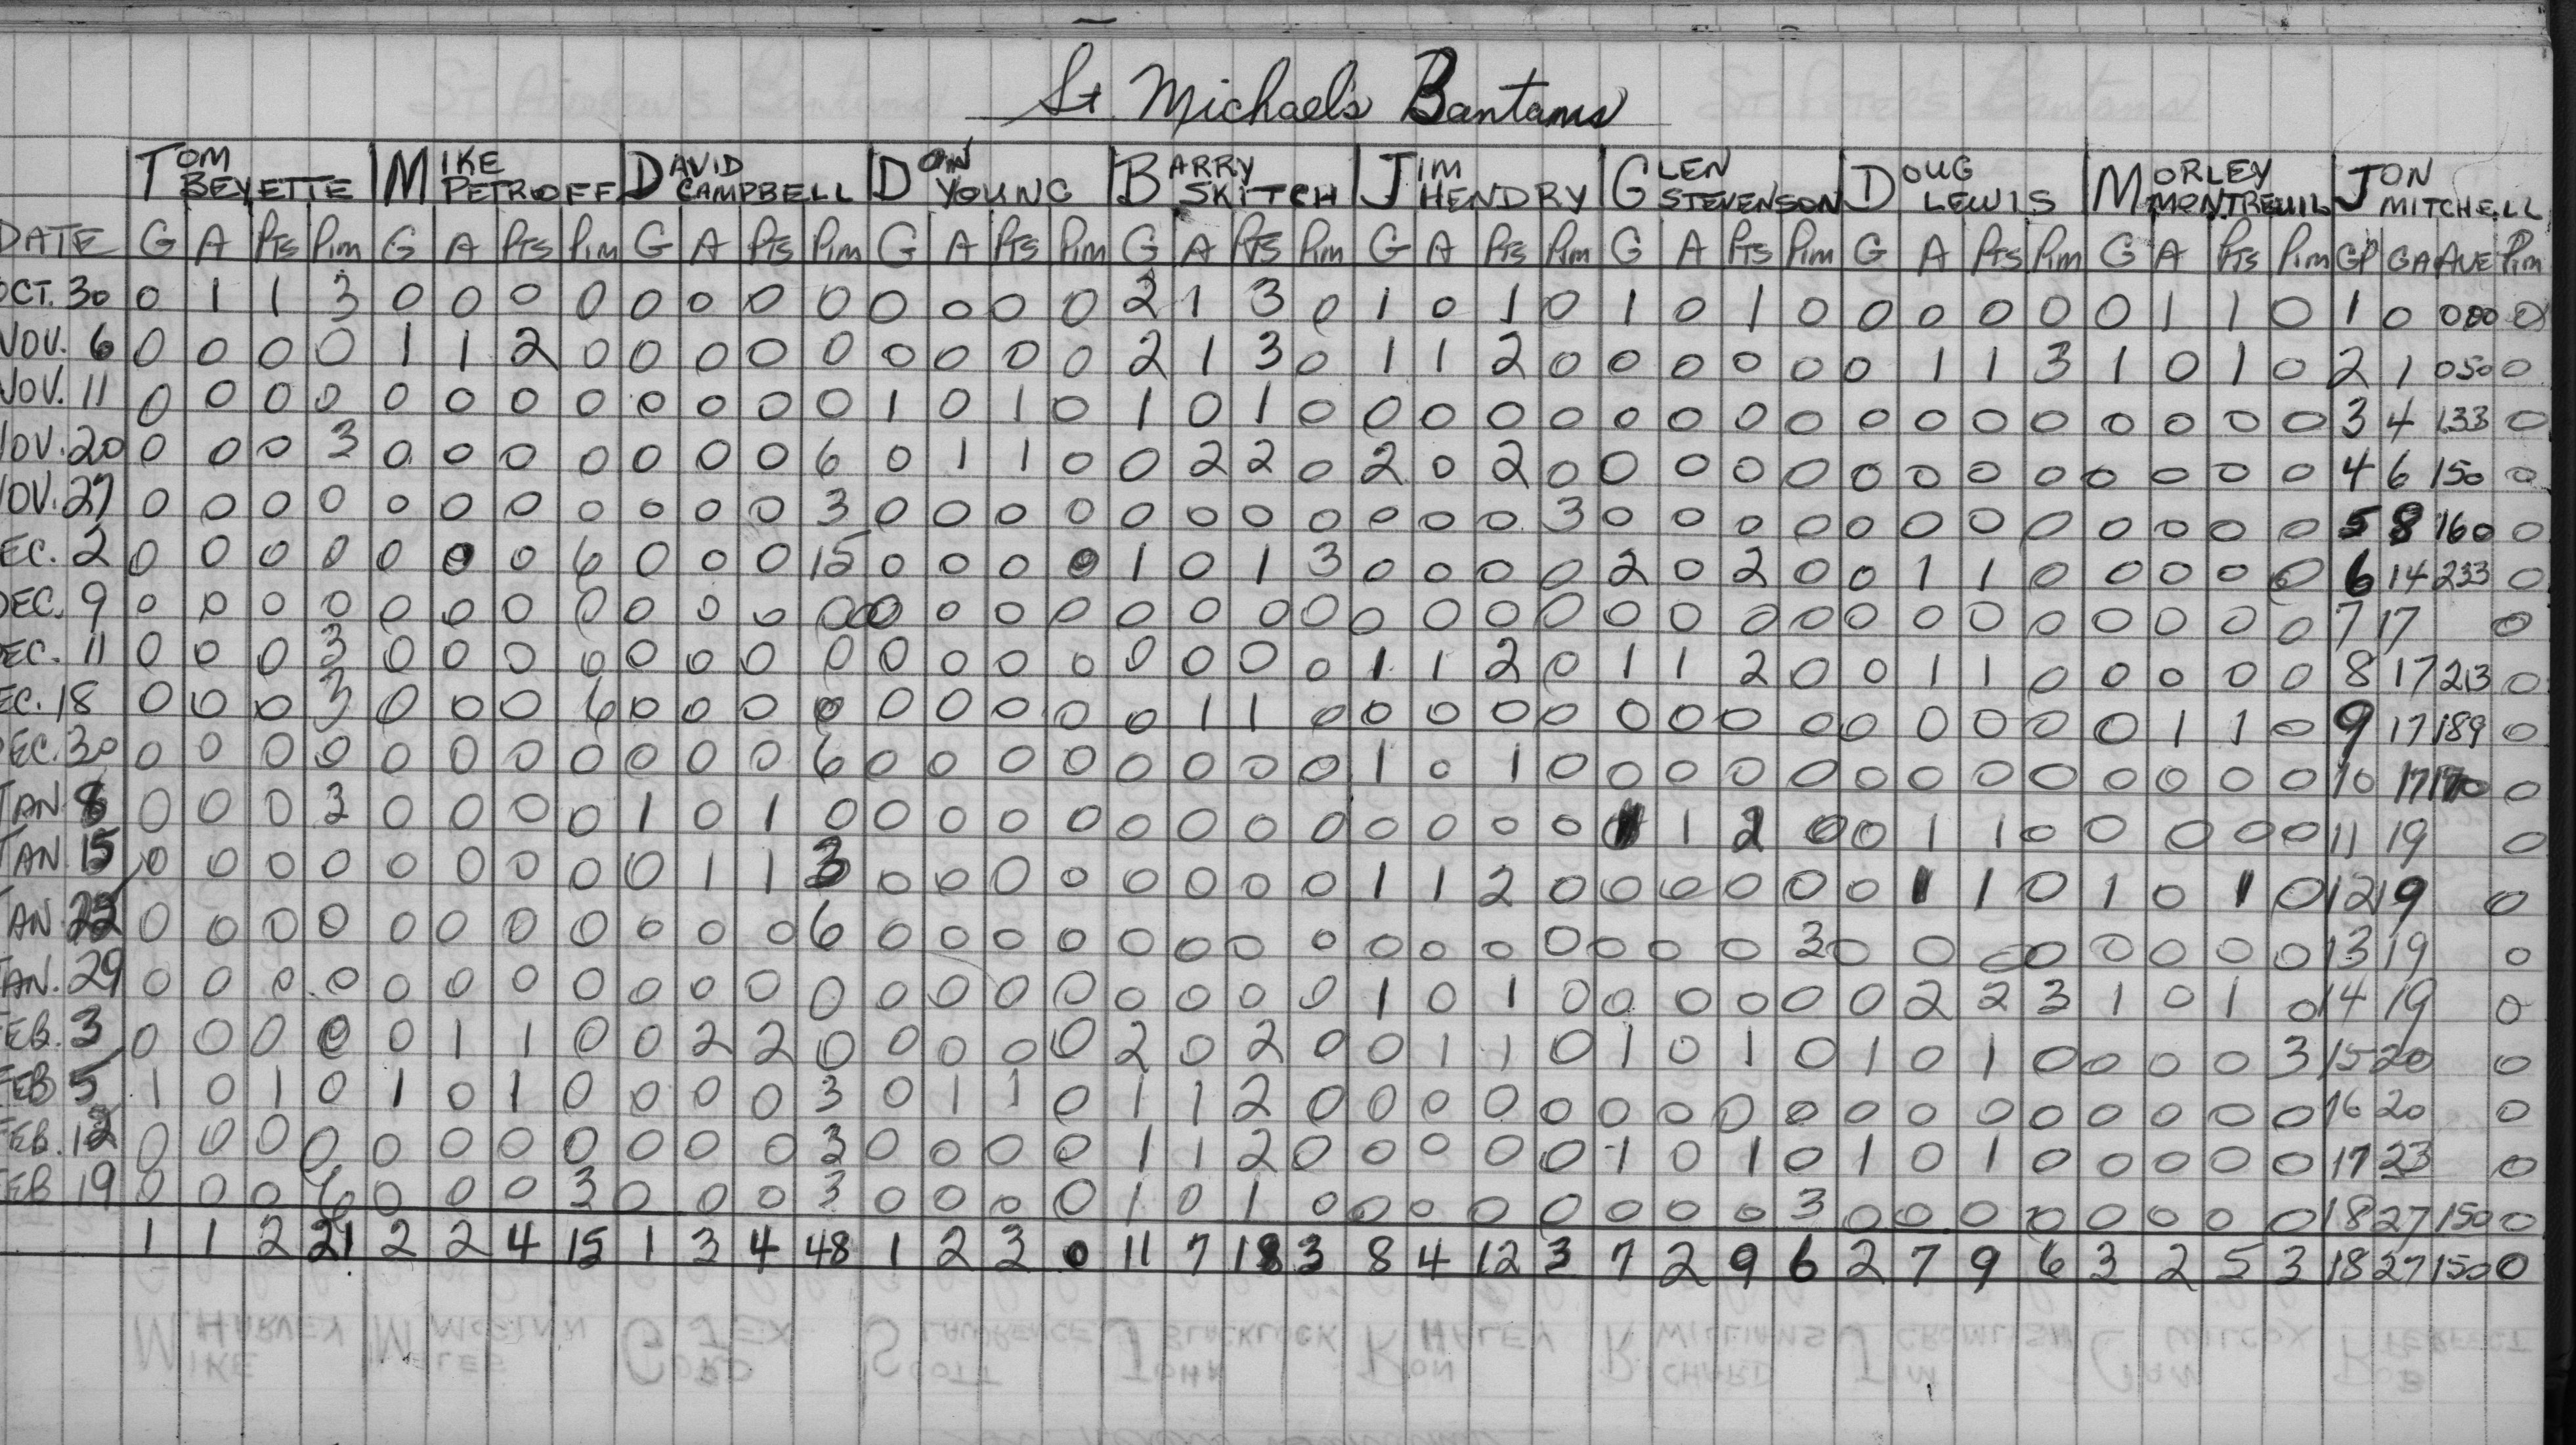 St. Michaels Bantams
TOM BEYETTE MIKE PETROFF DAVID CAMPBELL DON YOUNG BARRY SKITCH JIM HENDRY GLEN STEVENSON DOUG LEWIS MORLEY MONTREUIL JON MITCHELL
DATE G A Pts Pim G A Pts Pim G A Pts Pim G A Pts Pim G A Pts Pim G A Pts Pim G A Pts Pim G A Pts Pim G A Pts Pim GP GA AVE Pim
OCT. 30 0 1 1 3 0 0 0 0 0 0 0 0 0 0 0 0 2 1 3 0 1 0 1 0 1 0 1 0 0 0 0 0 0 1 1 0 1 0 000 0
NOV. 6 0 0 0 0 1 1 2 0 0 0 0 0 0 0 0 0 2 1 3 0 1 1 2 0 0 0 0 0 0 1 1 3 1 0 1 0 2 1 050 0
NOV. 11 0 0 0 0 0 0 0 0 0 0 0 0 1 0 1 0 1 0 1 0 0 0 0 0 0 0 0 0 0 0 0 0 0 0 0 0 3 4 1.33 0
NOV. 20 0 0 0 3 0 0 0 0 0 0 0 6 0 1 1 0 0 2 2 0 2 0 2 0 0 0 0 0 0 0 0 0 0 0 0 0 4 6 150 0
NOV. 27 0 0 0 0 0 0 0 0 0 0 0 3 0 0 0 0 0 0 0 0 0 0 0 3 0 0 0 0 0 0 0 0 0 0 0 0 5 8 160 0
EC. 2 0 0 0 0 0 0 0 6 0 0 0 15 0 0 0 0 1 0 1 3 0 0 0 0 2 0 2 0 0 1 1 0 0 0 0 0 6 14 233 0
DEC. 9 0 0 0 0 0 0 0 0 0 0 0 0 0 0 0 0 0 0 0 0 0 0 0 0 0 0 0 0 0 0 0 0 0 0 0 0 7 17 0
EC. 11 0 0 0 3 0 0 0 0 0 0 0 0 0 0 0 0 0 0 0 0 1 1 2 0 1 1 2 0 0 1 1 0 0 0 0 0 8 17 213 0
EC. 18 0 0 0 3 0 0 0 6 0 0 0 0 0 0 0 0 0 1 1 0 0 0 0 0 0 0 0 0 0 0 0 0 0 1 1 0 9 17 189 0
EC. 30 0 0 0 0 0 0 0 0 0 0 0 6 0 0 0 0 0 0 0 0 1 0 1 0 0 0 0 0 0 0 0 0 0 0 0 0 10 17 170 0
JAN 8 0 0 0 3 0 0 0 0 1 0 1 0 0 0 0 0 0 0 0 0 0 0 0 0 1 1 2 0 0 1 1 0 0 0 0 0 11 19 0
JAN 15 0 0 0 0 0 0 0 0 0 1 1 3 0 0 0 0 0 0 0 0 1 1 2 0 0 0 0 0 0 1 1 0 1 0 1 0 12 19 0
JAN 22 0 0 0 0 0 0 0 0 0 0 0 6 0 0 0 0 0 0 0 0 0 0 0 0 0 0 0 3 0 0 0 0 0 0 0 0 13 19 0
JAN. 29 0 0 0 0 0 0 0 0 0 0 0 0 0 0 0 0 0 0 0 0 1 0 1 0 0 0 0 0 0 2 2 3 1 0 1 0 14 19 0
EB. 3 0 0 0 0 0 1 1 0 0 2 2 0 0 0 0 0 2 0 2 0 0 1 1 0 1 0 1 0 1 0 1 0 0 0 0 3 15 20 0
FEB 5 1 0 1 0 1 0 1 0 0 0 0 3 0 1 1 0 1 1 2 0 0 0 0 0 0 0 0 0 0 0 0 0 0 0 0 0 16 20 0
FEB. 12 0 0 0 0 0 0 0 0 0 0 0 3 0 0 0 0 1 1 2 0 0 0 0 0 1 0 1 0 1 0 1 0 0 0 0 0 17 23 0
FEB 19 0 0 0 6 0 0 0 3 0 0 0 3 0 0 0 0 1 0 1 0 0 0 0 0 0 0 0 3 0 0 0 0 0 0 0 0 18 27 150 0
1 1 2 21 2 2 4 15 1 3 4 48 1 2 3 0 11 7 18 3 8 4 12 3 7 2 9 6 2 7 9 6 3 2 5 3 18 27 150 0